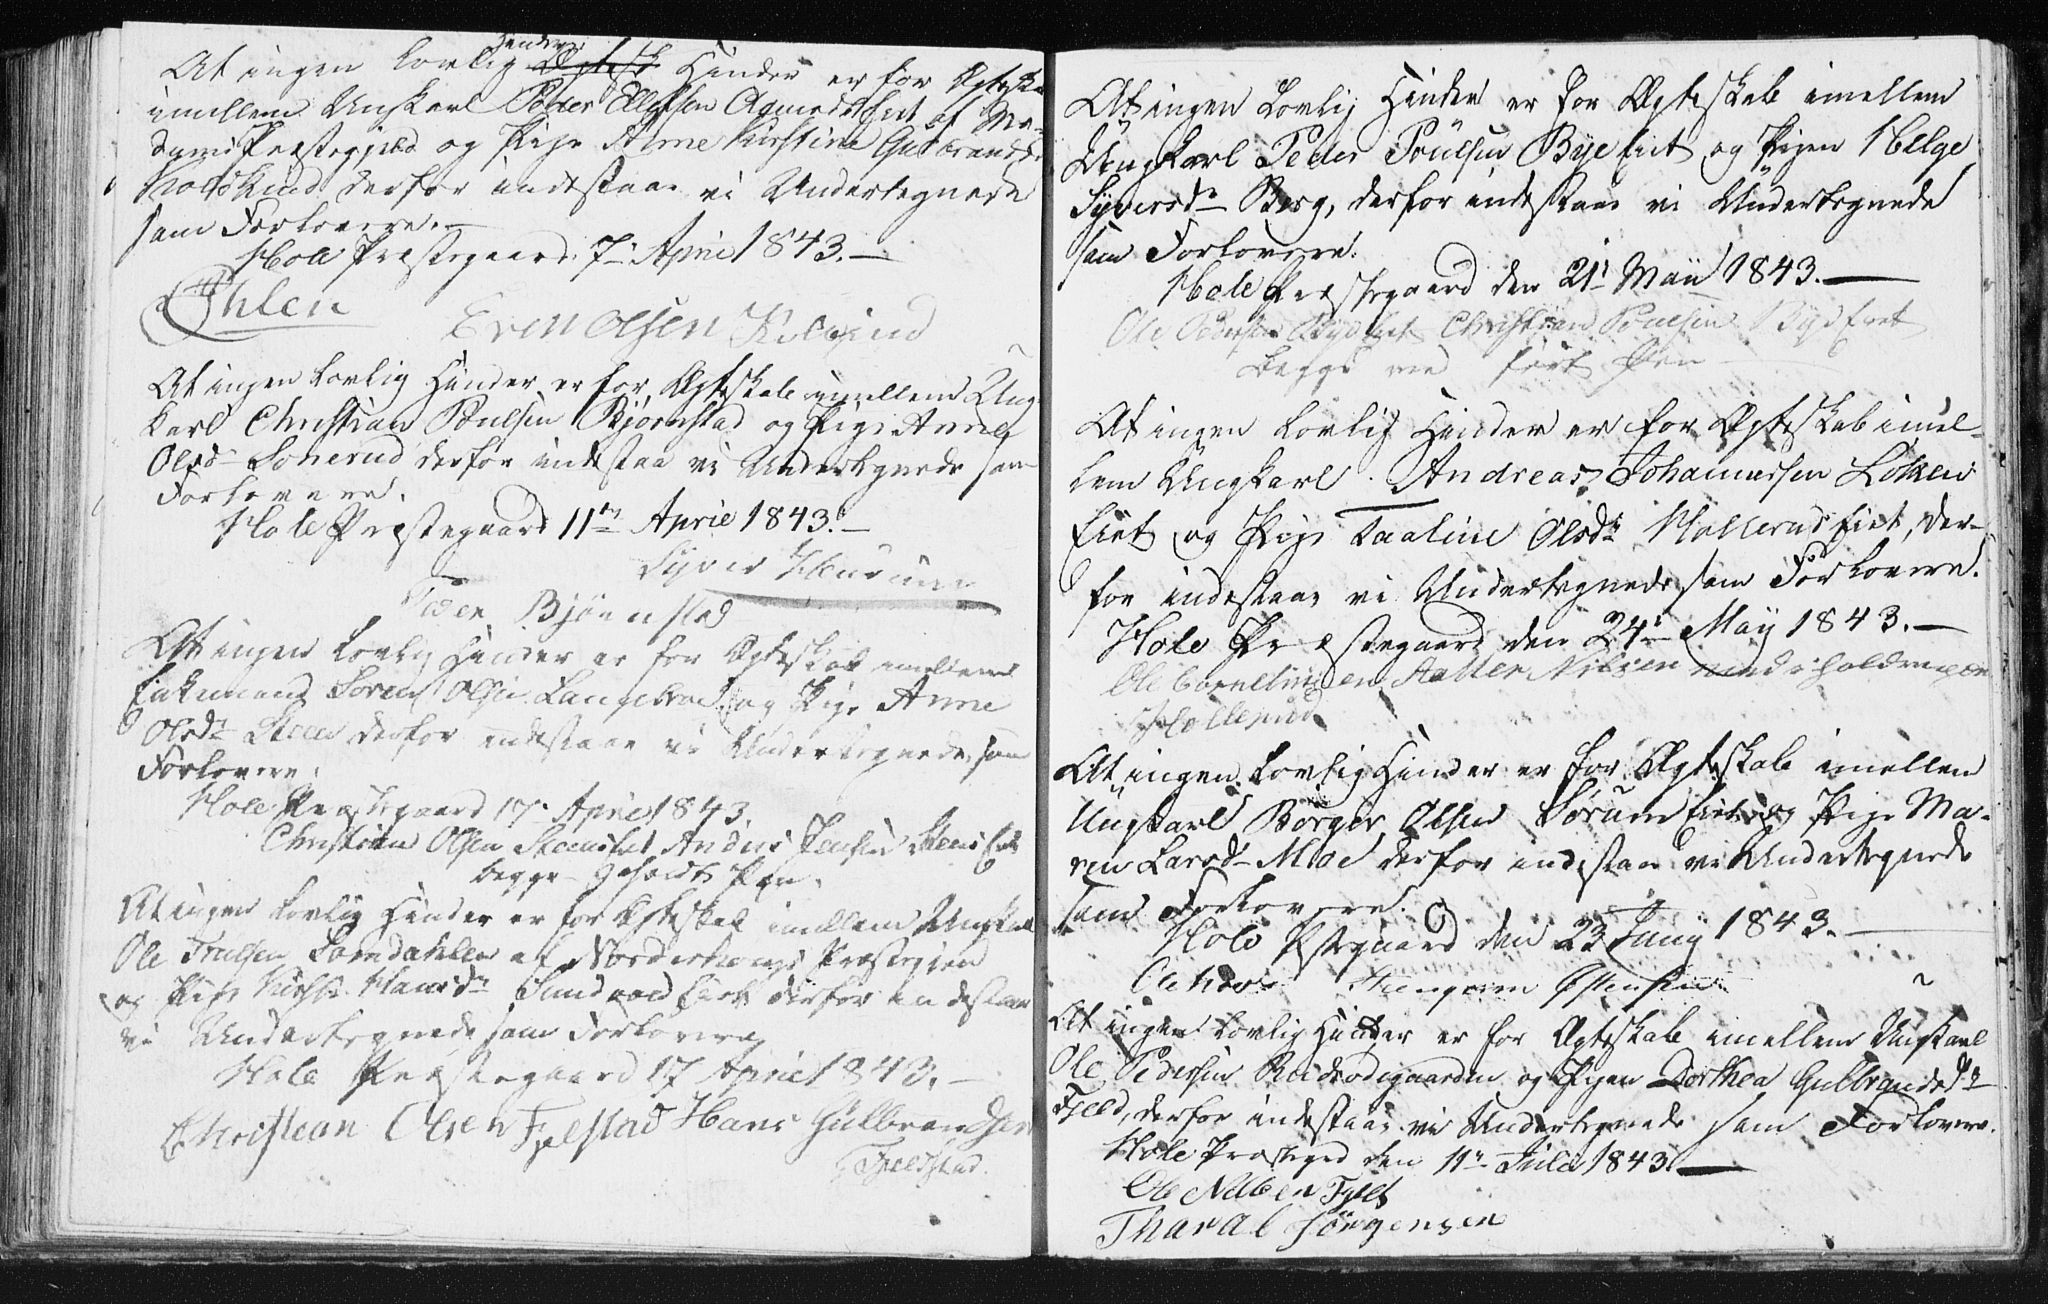 At ingen lovlig Hinder er for Ægteska
imellem Ungkarl Peder Ellefsen af Mo-
dums Præstegjeld og Pige Anne Kirstine Gulbrandsd.
derfor indestaae vi Undertegnede
som Forlovere.
Hole Præstegaard 7. April 1843.
Even Olsen
At ingen lovlig Hinder er for Ægteskab imellem Ung-
karl Christian Poulsen Bjørnstad og Pige Anne
Olsd. Lonerud derfor indestaa vi Undertegnede som
Forlovere.
Hole Præstegaard 11te April 1843.
Syver
Peder Bjørnstad
At ingen lovlig Hinder er for Ægteskab imellem
Enkemand Søren Olsen og Pige Anne
Olsdr. Steen derfor indestaae vi Undertegnede som
Forlovere.
Hole Præstegaard 17. April 1843.
Christian Olsen Anders Jensen
begge Pen.
At ingen lovlig Hinder er for Ægteskab imellem Ungkarl
Ole Trulsen af Norderhougs Præstegjeld
og Pige Hansdr. derfor indestaae
vi Undertegnede som Forlovere
Hole Præstegaard 17 April 1843.
Christian Olsen Fjelstad Hans Gulbrandsen
Fjeldstad.
At ingen Lovlig Hinder er for Ægteskab imellem
Ungkarl Peder Poulsen Bye Eiet og Pigen Helge
Syversdr. Berg, derfor indestaae vi Undertegnede
som Forlovere.
Hole Præstegaard den 21. Maii 1843.
Ole Pedersen Christian Poulsen ByeEiet
begge med ført Pen
At ingen Lovlig Hinder er for Ægteskab imel-
lem Ungkarl Andreas Johannessen Løken
Eiet og Pige Kaaline Olsdr. Hollerud Eiet, der-
for indestaae vi Undertegnede som Forlovere.
Hole Præstegaard den 24. Maÿ 1843.
Ole Corneliusen Halter Nilsen med iholdenpen
Hollerud
At ingen Lovlig Hinder er for Ægteskab imellem
Ungkarl Børger Olsen Sørum Eiet og Pige Ma-
ren Larsd. Moe derfor indestaae vi Undertegnede
som Forlovere.
Hole Pstgaard den 23 Junÿ 1843.
At ingen Lovlig Hinder er for Ægteskab imellem Ungkarl
Ole Pedersen og Pigen Dorthea Gulbrandsdr
Fjeld, derfor indestaae vi Undertegnede som Forlovere.
Hole Præstegd den 11. Juli 1843.
Ole Fjelt
Tharal Jörgensen